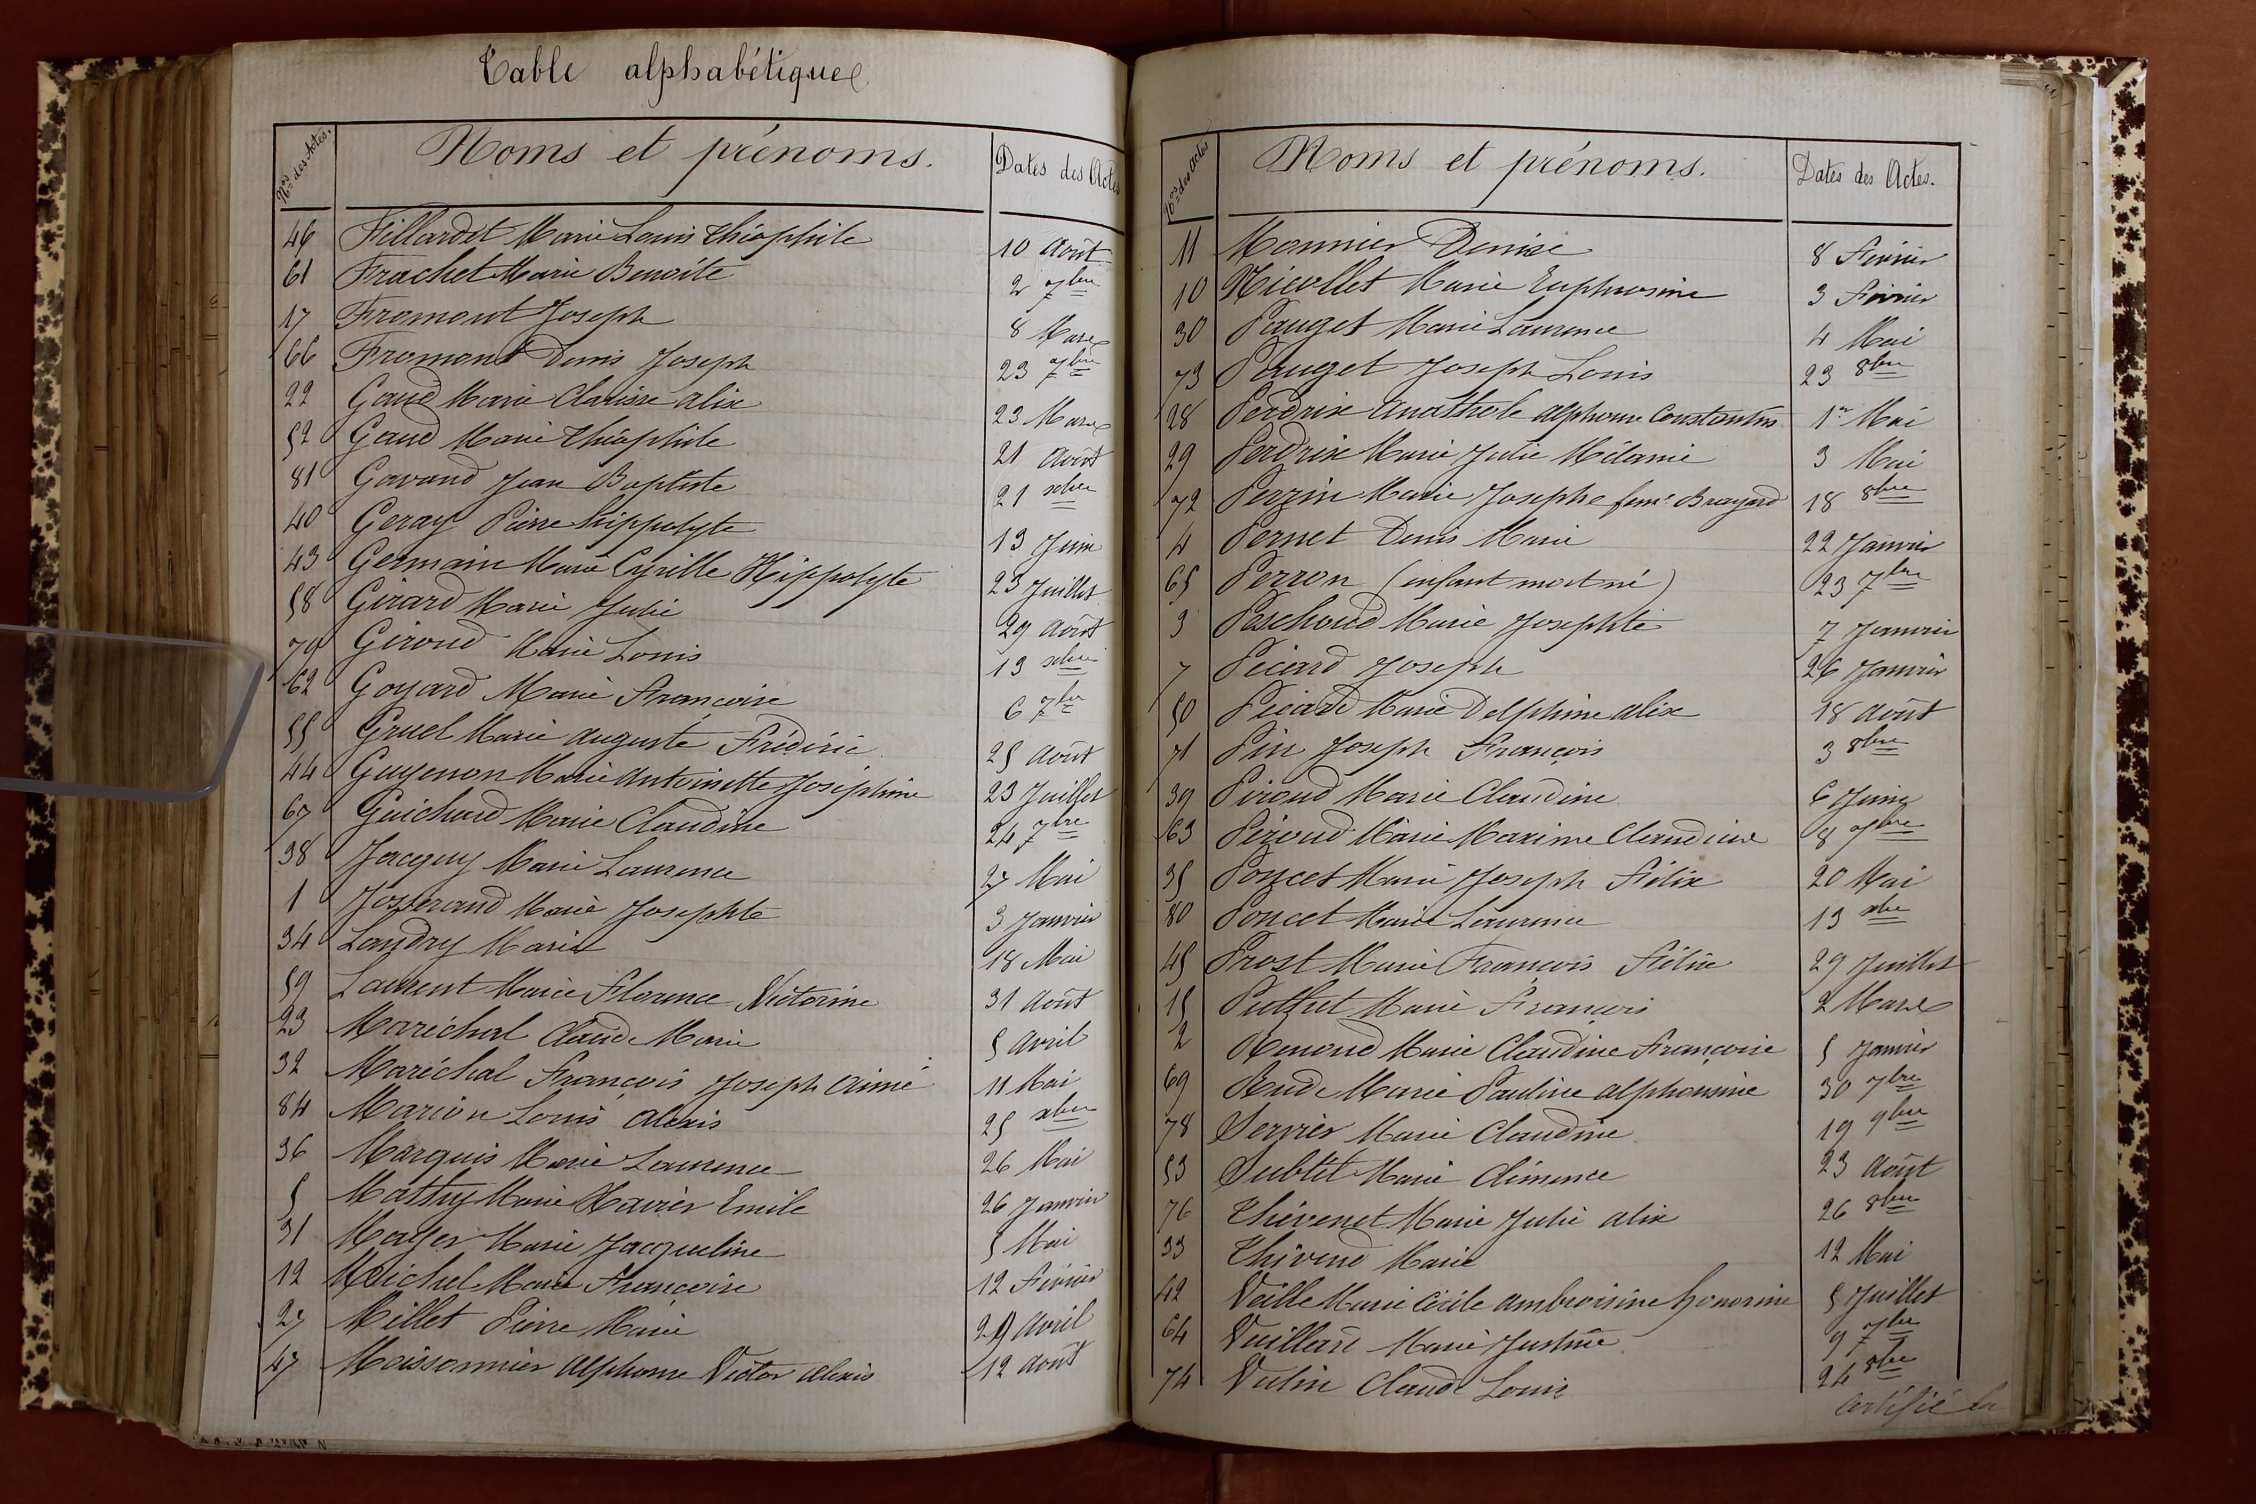 Table alphabétique
Nos des Actes. Noms et prénoms. Dates des Actes
46 Fillardet Marie Louis théophile 10 Août
61 Frachet Marie Benoîte 2 7bre
17 Fromont Joseph 8 Mars
66 Fromont Denis Joseph 23 7bre
22 Gaud Marie Clarisse alix 23 Mars
52 Gaud Marie théophile 21 Août
81 Gavand Jean Baptiste 21 xbre
40 Geray Pierre hippolyte 13 Juin
43 Germain Marie Cyrille Hippolyte 23 Juillet
58 Girard Marie Julie 29 Août
79 Giroud Marie Louis 13 xbre
62 Goyard Marie Françoise 6 7bre
55 Gruel Marie auguste Frédéric 25 Août
44 Guyenon Marie Antoinette Joséphine 23 Juillet
67 Guichard Marie Claudine 24 7bre
38 Jacquy Marie Laurence 27 Mai
1 Josserand Marie Josephte 3 Janvier
34 Landry Marie 18 Mai
59 Laurent Marie Florence Victorine 31 Août
23 Maréchal Claude Marie 5 Avril
32 Maréchal François Joseph Aimé 11 Mai
84 Marion Louis Alexis 25 xbre
36 Marquis Marie Laurence 26 Mai
5 Mathy Marie Xavier Emile 26 Janvier
31 Mayer Marie Jacqueline 5 Mai
12 Michel Marie Françoise 12 Février
27 Millet Pierre Marie 29 Avril
47 Moissonnier Alphonse Victor Alexis 12 Août
Nos des Actes Noms et prénoms. Dates des Actes.
11 Monnier Denise 8 Février
10 Nicollet Marie Euphrosine 3 Février
30 Pauget Marie Laurence 4 Mai
73 Pauget Joseph Louis 23 8bre
28 Perdrix Anathole Alphonse Constantin 1er Mai
29 Perdrix Marie Julie Mélanie 3 Mai
72 Perrin Marie Josephe feme Brayard 18 8bre
4 Pernet Denis Marie 22 Janvier
65 Perron (enfant mort né) 23 7bre
3 Paschoud Marie Josephte 7 Janvier
7 Picard Joseph 26 Janvier
50 Picard Marie Delphine alix 18 Août
71 Pin Joseph François 3 8bre
39 Piroud Marie Claudine 6 Juin
63 Piroud Marie Maxime Claudine 8 7bre
35 Poncet Marie Joseph Félix 20 Mai
80 Poncet Marie Laurence 13 xbre
45 Prost Marie François Félix 29 Juillet
15 Puthet Marie François 2 Mars
2 Renoud Marie Claudine Françoise 5 Janvier
69 Rude Marie Pauline Alphonsine 30 7bre
78 Servier Marie Claudine 19 9bre
53 Subtil Marie Clémence 23 Août
76 Thévenet Marie Julie alix 26 8bre
33 Thivend Marie 12 Mai
42 Veille Marie Cécile ambroisine honorine 5 Juillet
64 Vuillard Marie Justine 9 7bre
74 Vulin Claude Louis 24 8bre
Certifié la